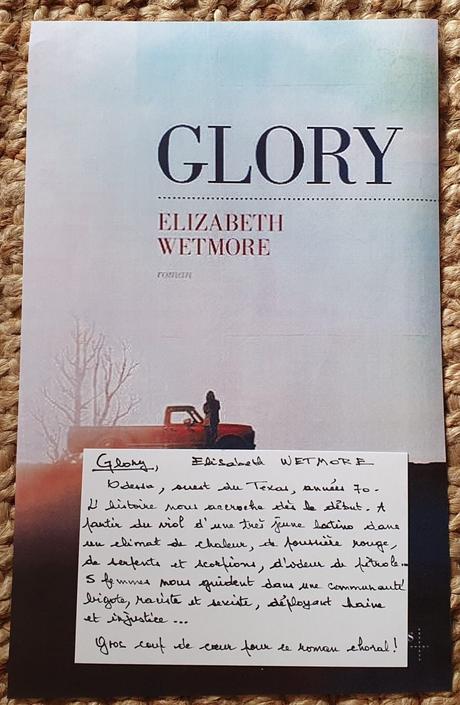 GLORY
ELIZABETH
WETMORE
roman
Glory, Elisabeth WETMORE
Odessa, ouest du Texas, années 70.
L'histoire nous accroche dès le début. A
partir du viol d'une très jeune latino dans
un climat de chaleur, de poussière rouge,
de serpents et scorpions, d'odeur de pétrole...
5 femmes nous guident dans une communauté
bigote, raciste et sexiste, déployant haine
et injustice ...
Gros coup de cœur pour ce roman choral!